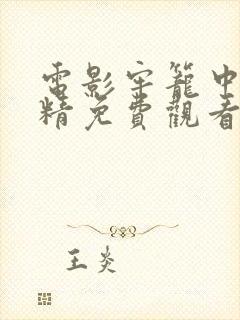 電影牢籠中
精免費觀看
王炎